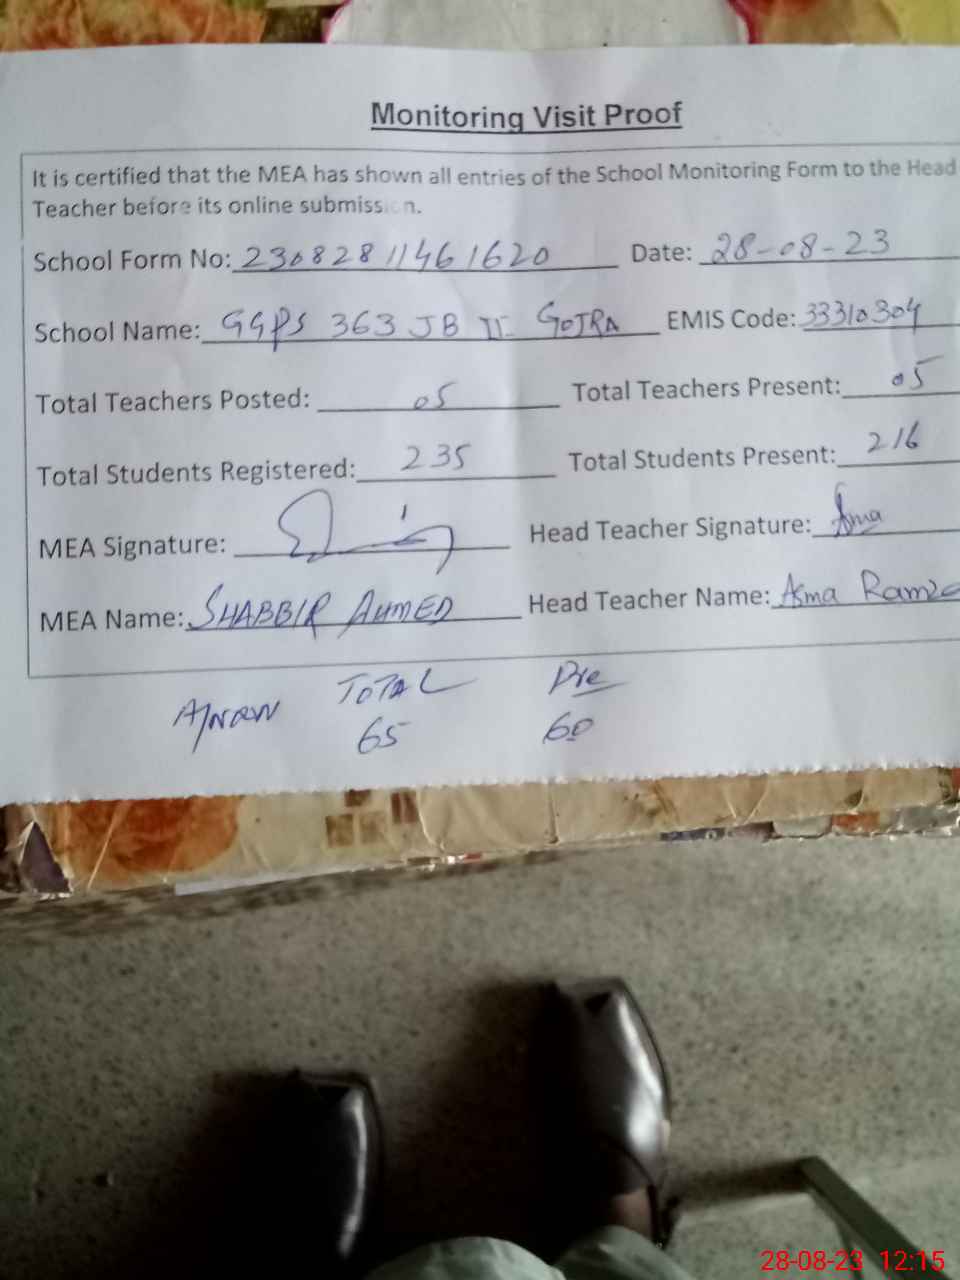 Monitoring Visit Proof
It is certified that the MEA has shown all entries of the School Monitoring Form to the Head
Teacher before its online submission.
School Form No: 23082811461620 Date: 28-08-23
School Name: GGPS 363 JB II GOJRA EMIS Code: 33310304
Total Teachers Posted: 05 Total Teachers Present: 05
Total Students Registered: 235 Total Students Present: 216
MEA Signature: Head Teacher Signature: Asma
MEA Name: SHABBIR AHMED Head Teacher Name: Asma
TOTAL Pre
65 60
28-08-23 12:15